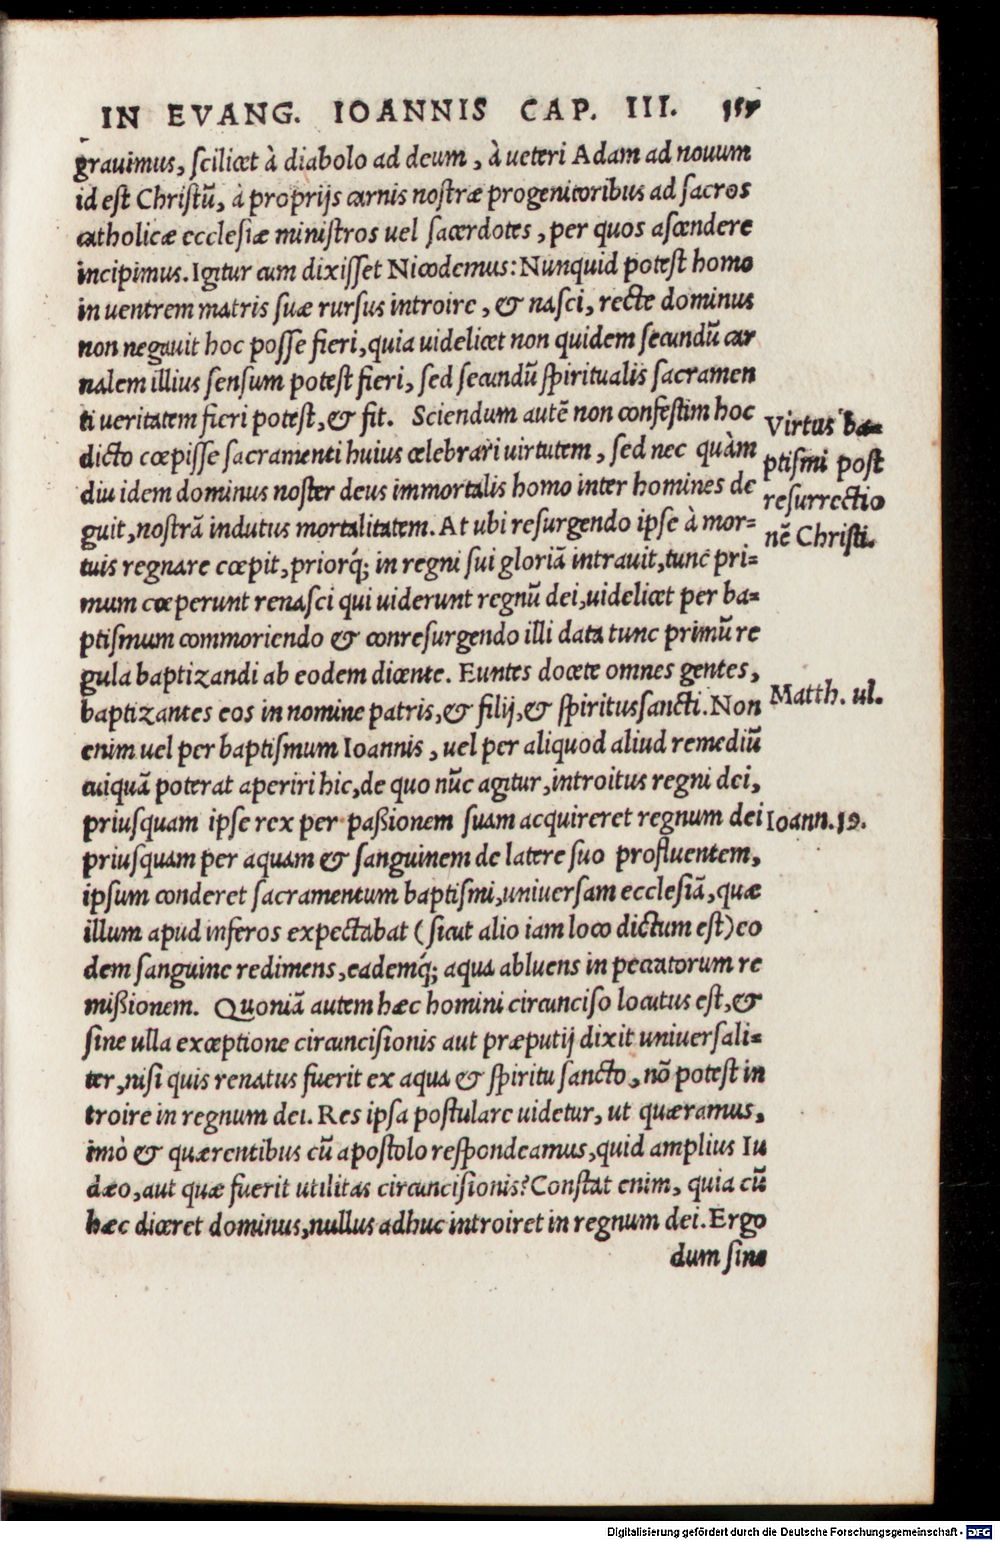 IN EVANG. IOANNIS CAP. III.
grauimus, scilicet à diabolo ad deum, à ueteri Adam ad nouum
id est Christū, à proprijs carnis nostræ progenitoribus ad sacros
catholicæ ecclesiæ ministros uel sacerdotes, per quos ascendere
incipimus. Igitur cum dixisset Nicodemus: Nunquid potest homo
in uentrem matris suæ rursus introire, & nasci, recte dominus
non negauit hoc posse fieri, quia uidelicet non quidem secundū car
nalem illius sensum potest fieri, sed secundū spiritualis sacramen
ti ueritatem fieri potest, & fit. Sciendum autē non confestim hoc
dicto cœpisse sacramenti huius celebrari uirtutem, sed nec quàm
diu idem dominus noster deus immortalis homo inter homines de
guit, nostrā indutus mortalitatem. At ubi resurgendo ipse à mor=
tuis regnare cœpit, priorq́; in regni sui gloriā intrauit, tunc pri=
mum cœperunt renasci qui uiderunt regnū dei, uidelicet per ba=
ptismum commoriendo & conresurgendo illi data tunc primū re
gula baptizandi ab eodem dicente. Euntes docete omnes gentes,
baptizantes eos in nomine patris, & filij, & spiritussancti. Non
enim uel per baptismum Ioannis, uel per aliquod aliud remediū
cuiquā poterat aperiri hic, de quo nūc agitur, introitus regni dei,
priusquam ipse rex per paßionem suam acquireret regnum dei
priusquam per aquam & sanguinem de latere suo profluentem,
ipsum conderet sacramentum baptismi, uniuersam ecclesiā, quæ
illum apud inferos expectabat (sicut alio iam loco dictum est) eo
dem sanguine redimens, eademq́; aqua abluens in peccatorum re
mißionem. Quoniā autem hæc homini circunciso locutus est, &
sine ulla exceptione circuncisionis aut præputij dixit uniuersali=
ter, nisi quis renatus fuerit ex aqua & spiritu sancto, nō potest in
troire in regnum dei. Res ipsa postulare uidetur, ut quæramus,
imò & quærentibus cū apostolo respondeamus, quid amplius Iu
dæo, aut quæ fuerit utilitas circuncisionis? Constat enim, quia cū
hæc diceret dominus, nullus adhuc introiret in regnum dei. Ergo
dum sine
Virtus ba=
ptismi post
resurrectio
nē Christi.
Matth. ul.
Ioann. 19.
Digitalisierung gefördert durch die Deutsche Forschungsgemeinschaft - DFG